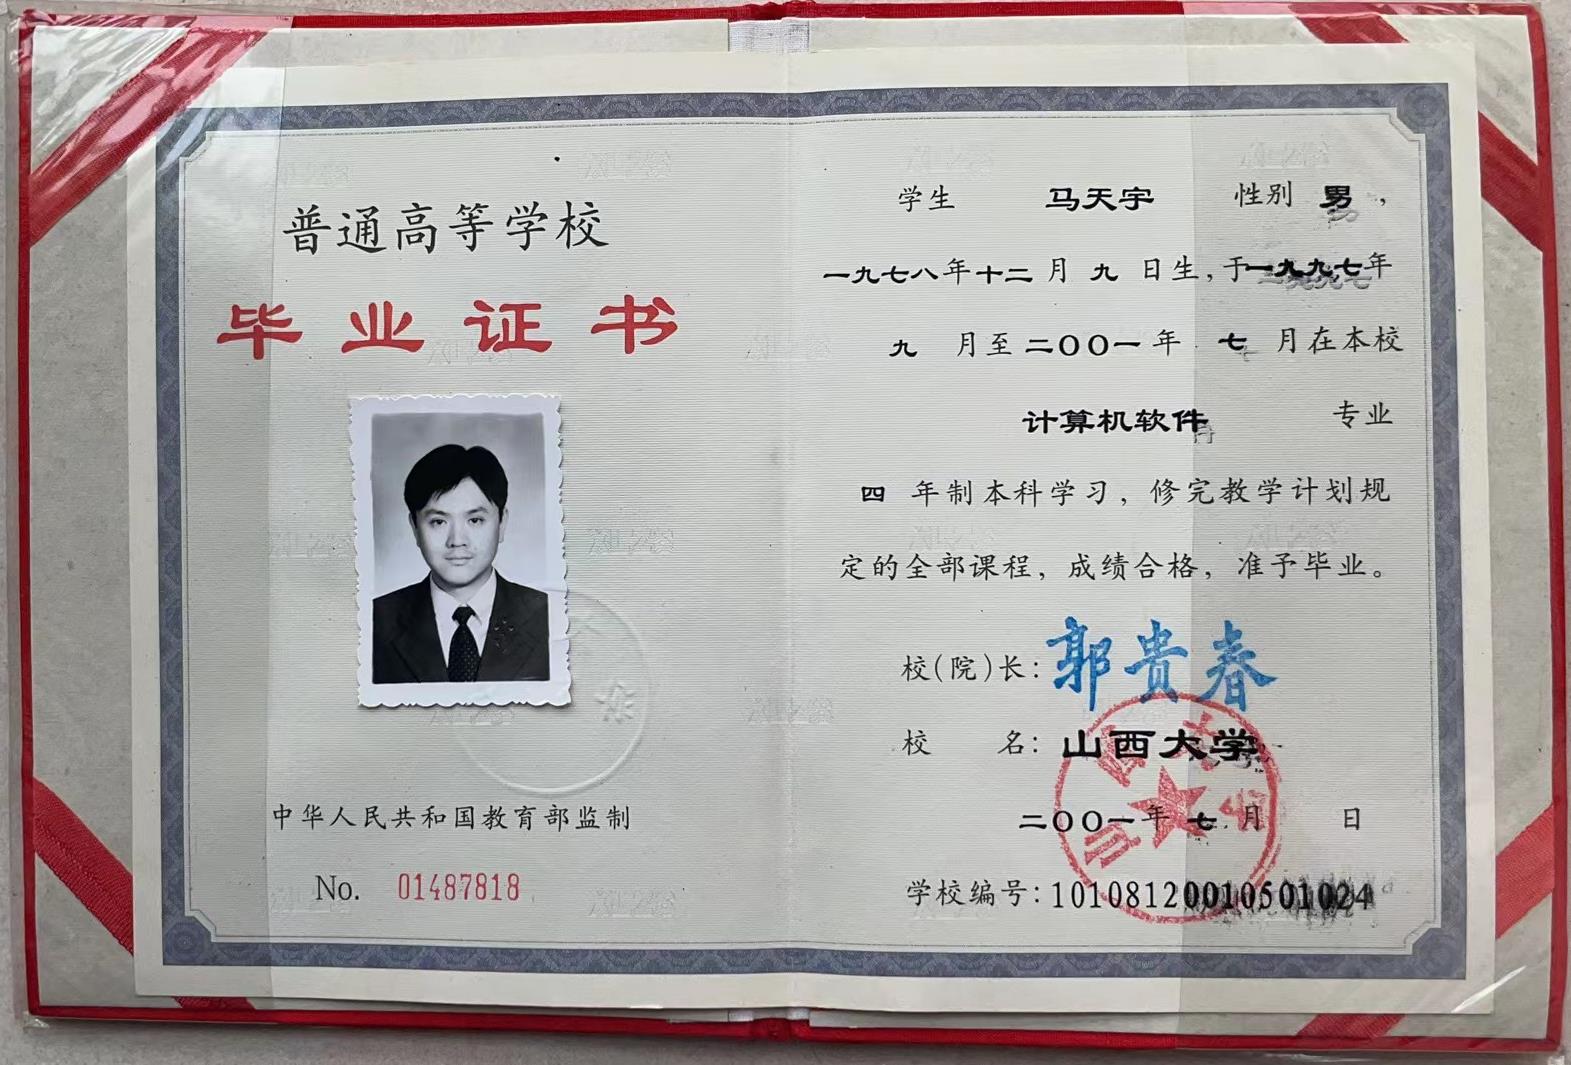 普通高等学校
毕业证书
中华人民共和国教育部监制
No. 01487818
学生 马天宇 性别 男,
一九七八年十二月九日生,于一九九七年
九月至二〇〇一年七月在本校
计算机软件 专业
四年制本科学习,修完教学计划规
定的全部课程,成绩合格,准予毕业。
校(院)长: 郭贵春
校名: 山西大学
二〇〇一年七月 日
学校编号: 10108120010501024
山西大学